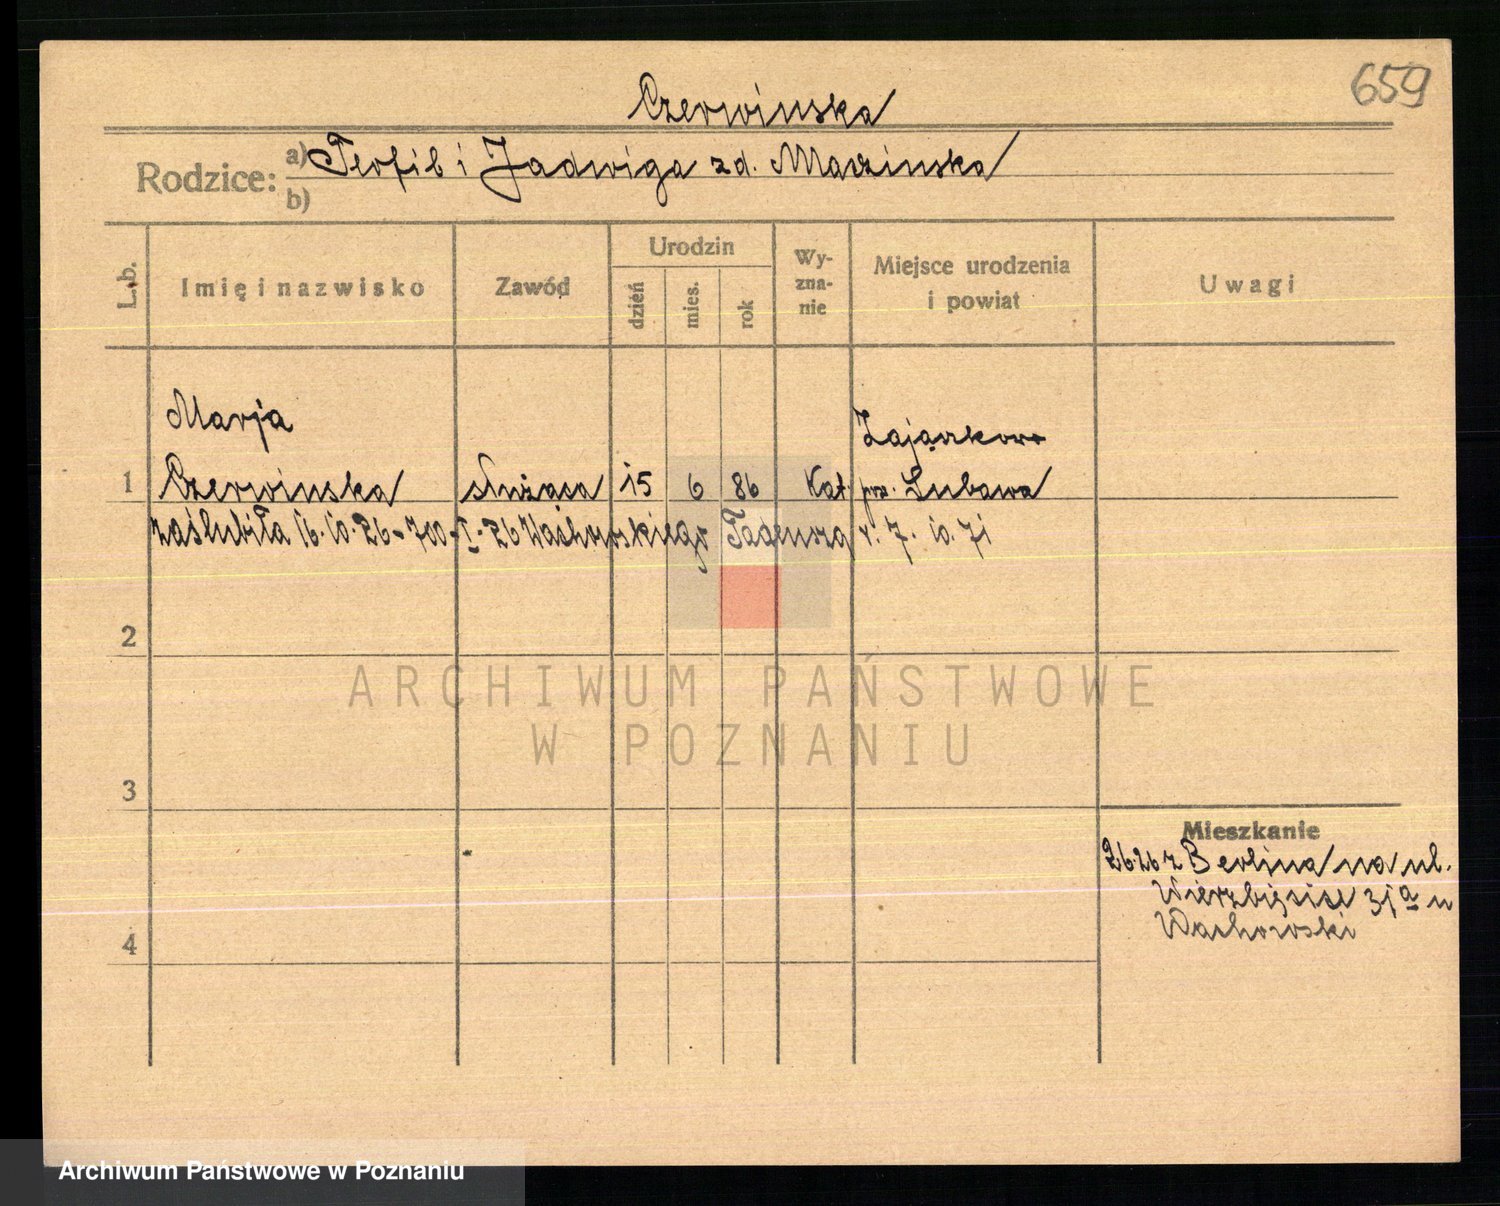 659
Czerwinska
Rodzice: a) Teofil i Jadwiga zd. Marzinska
b)
L.b. Imię i nazwisko Zawód Urodzin dzień mies. rok Wy-zna-nie Miejsce urodzenia i powiat Uwagi
Marja Zajączkowo
1 Czerwinska służąca 15 6 86 Kat. pow. Lubawa
zaślubiła 16.10.26 - 700 - I - 26 Wachowskiego Tadeusza r. 7. 10. 71
2
ARCHIWUM PAŃSTWOWE
W POZNANIU
3
Mieszkanie
z Berlina na ul.
Wierzbięcice 31a u
4 Wachowski
Archiwum Państwowe w Poznaniu